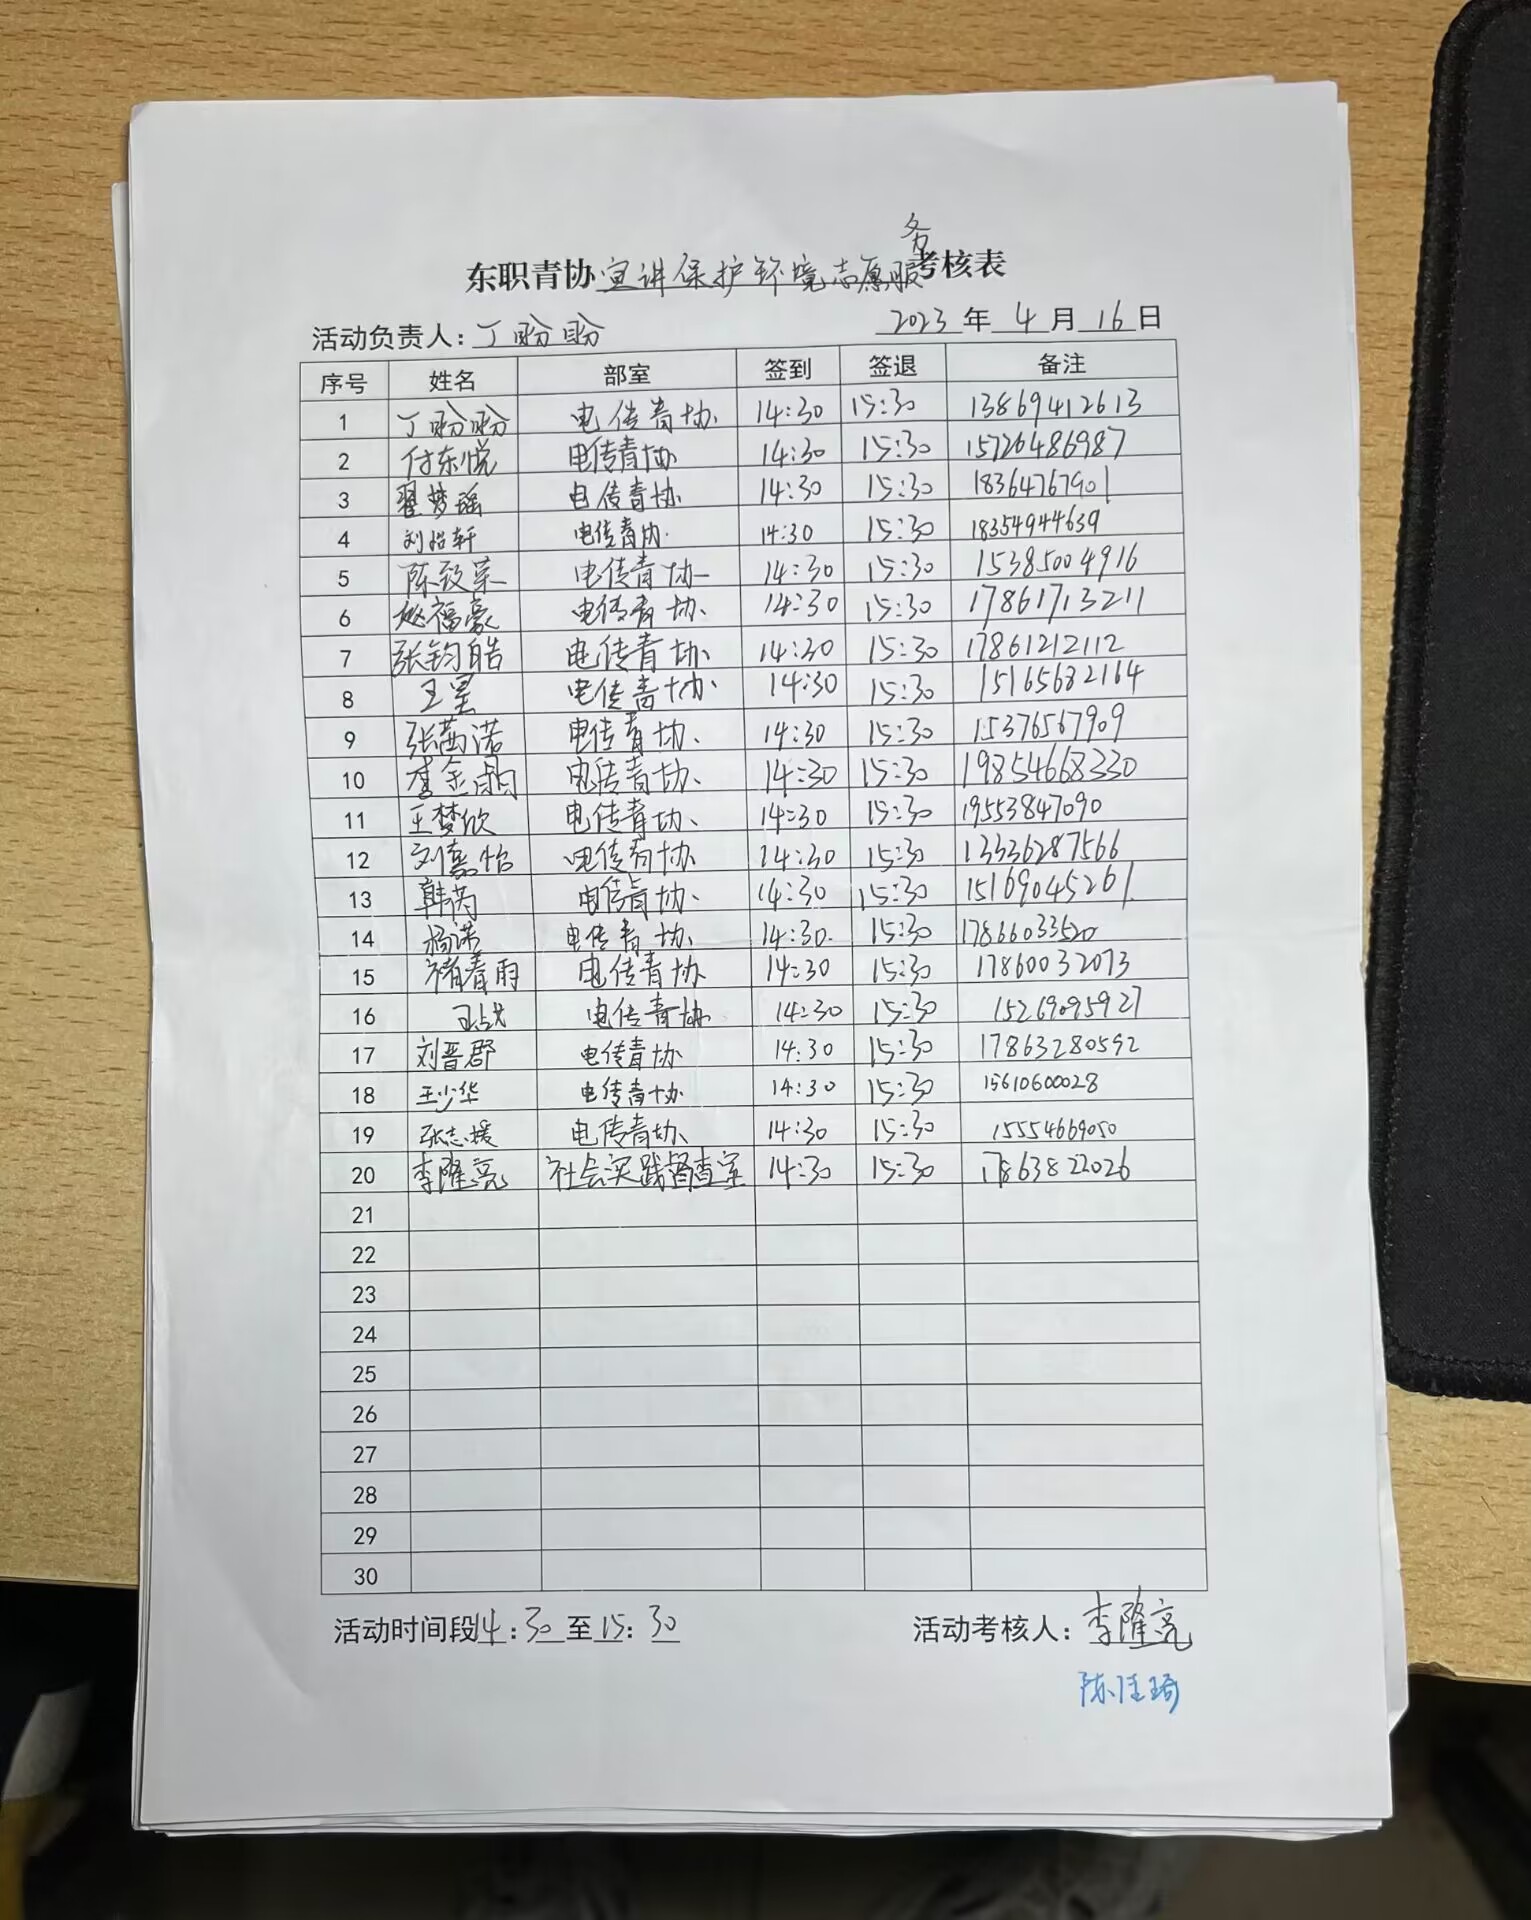 东职青协宣讲保护环境志愿服务考核表
活动负责人：丁盼盼 2023年4月16日
序号 姓名 部室 签到 签退 备注
1 丁盼盼 电传青协 14:30 15:30 13869412613
2 付东悦 电传青协 14:30 15:30 15726486987
3 翟梦瑶 电传青协 14:30 15:30 18364767901
4 刘怡轩 电传青协 14:30 15:30 18354944639
5 陈致荣 电传青协 14:30 15:30 15385004916
6 赵福豪 电传青协 14:30 15:30 17861713211
7 张钧皓 电传青协 14:30 15:30 17861212112
8 王昱 电传青协 14:30 15:30 15165682164
9 张茜诺 电传青协 14:30 15:30 15376567909
10 李金雨 电传青协 14:30 15:30 19854668330
11 王梦欣 电传青协 14:30 15:30 19553847090
12 刘嘉怡 电传青协 14:30 15:30 13336287566
13 韩芮 电传青协 14:30 15:30 15169045261
14 杨诺 电传青协 14:30 15:30 17866033520
15 褚春雨 电传青协 14:30 15:30 17860032073
16 电传青协 14:30 15:30 15269095927
17 刘晋郡 电传青协 14:30 15:30 17863280592
18 王少华 电传青协 14:30 15:30 15610600028
19 张志援 电传青协 14:30 15:30 15554669050
20 李隆亮 社会实践督查室 14:30 15:30 17863822026
21
22
23
24
25
26
27
28
29
30
活动时间段14:30至15:30 活动考核人：李隆亮
陈佳琦